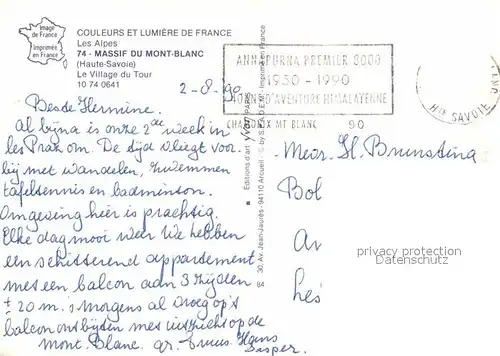 Image
de France
Imprimée
en France
COULEURS ET LUMIÈRE DE FRANCE
Les Alpes
74 - MASSIF DU MONT-BLANC
(Haute-Savoie)
Le Village du Tour
10 74 0641
2-8-'90
Beste Hermine,
Al bijna is onze 2de week in
les Praz om. De tijd vliegt voor
bij met wandelen, zwemmen
tafeltennis en badminton.
Omgeving hier is prachtig.
Elke dag mooi weer. We hebben
een schitterend appartement
met een balcon aan 3 zijden
± 20 m. 's Morgens al vroeg op 't
balcon ontbijten met uitzicht op de
Mont Blanc. gr. Truus Hans
Jasper.
Editions d'art yvon PARIS
30, Av. Jean-Jaurès - 94110 Arcueil - © by S.P.A.D.E.M. - Imprimé en France
84
ANNAPURNA PREMIER 8000
1950 - 1990
40 ANS D'AVENTURE HIMALAYENNE
CHAMONIX MT BLANC 90
HTE SAVOIE
Mevr. H. Brunsting
Bol
Ar
hes
privacy protection
Datenschutz